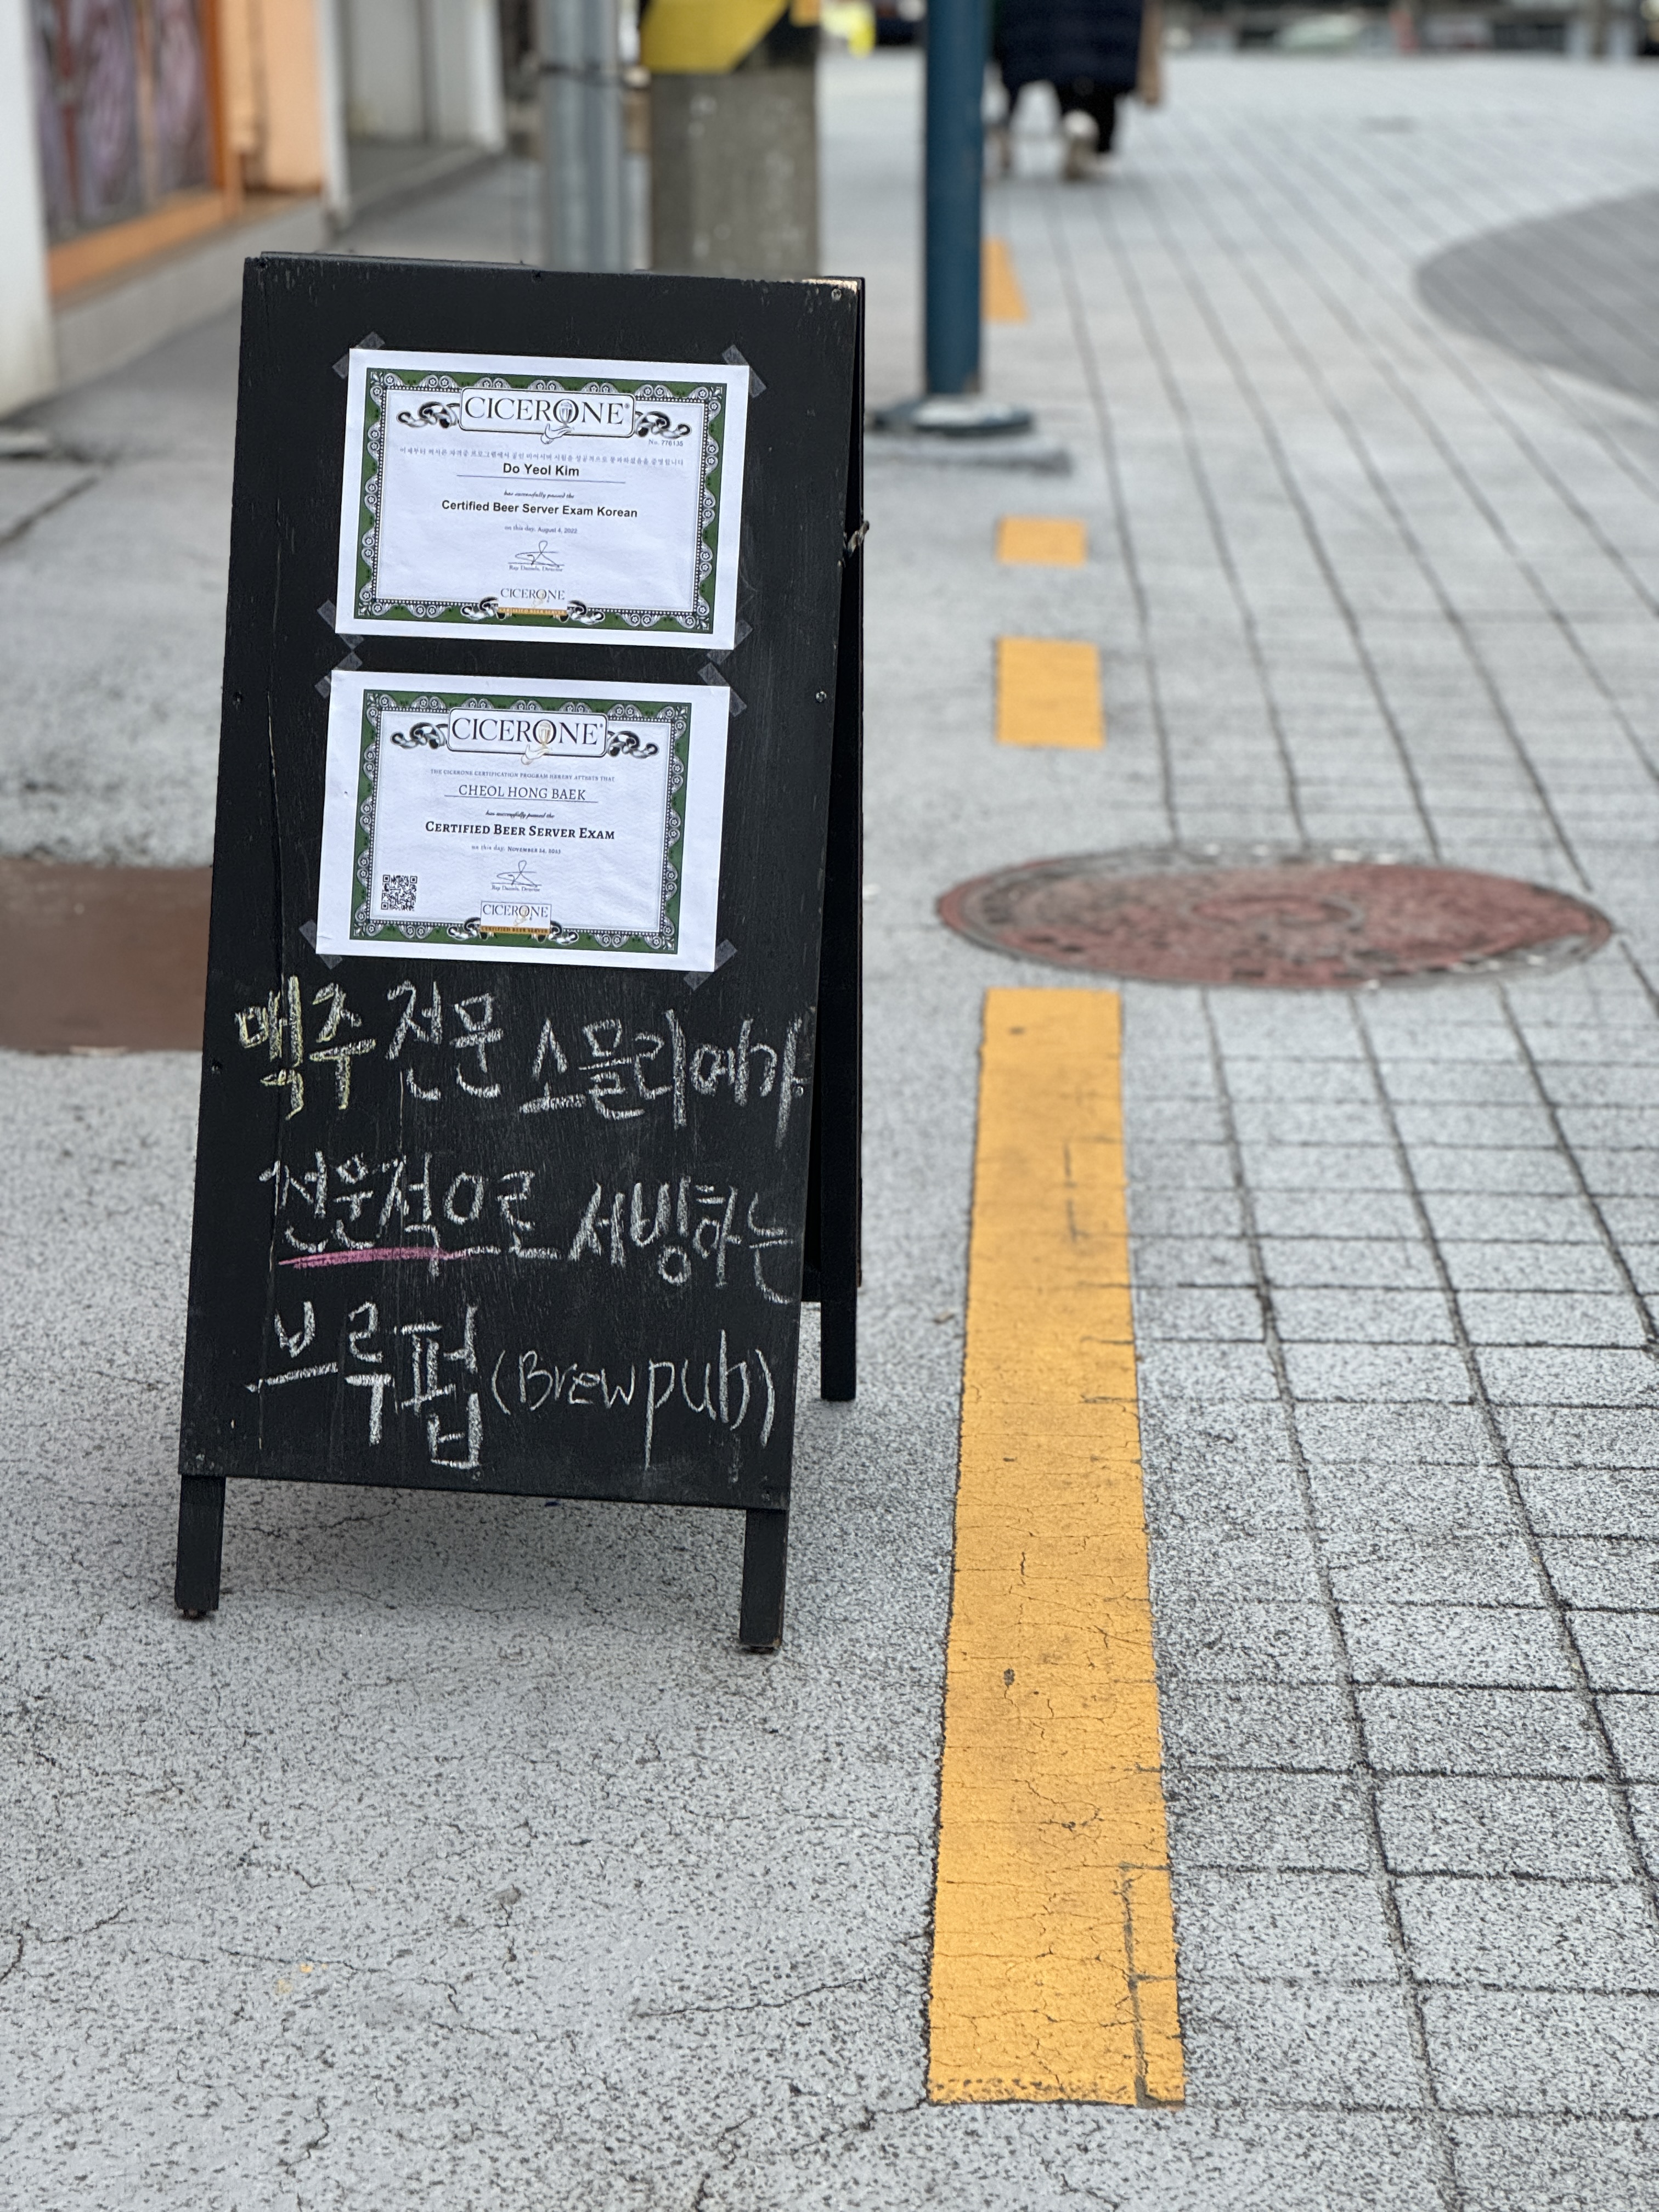 CICERONE®
No. 776135
Do Yeol Kim
has successfully passed the
Certified Beer Server Exam Korean
on this day, August 4, 2022
Ray Daniels, Director
CICERONE
CERTIFIED BEER SERVER
CICERONE®
THE CICERONE CERTIFICATION PROGRAM HEREBY ATTESTS THAT
CHEOL HONG BAEK
has successfully passed the
CERTIFIED BEER SERVER EXAM
on this day, NOVEMBER
Ray Daniels, Director
CICERONE
CERTIFIED BEER SERVER
맥주 전문 소믈리에가
전문적으로 서빙하는
브루펍 (Brewpub)